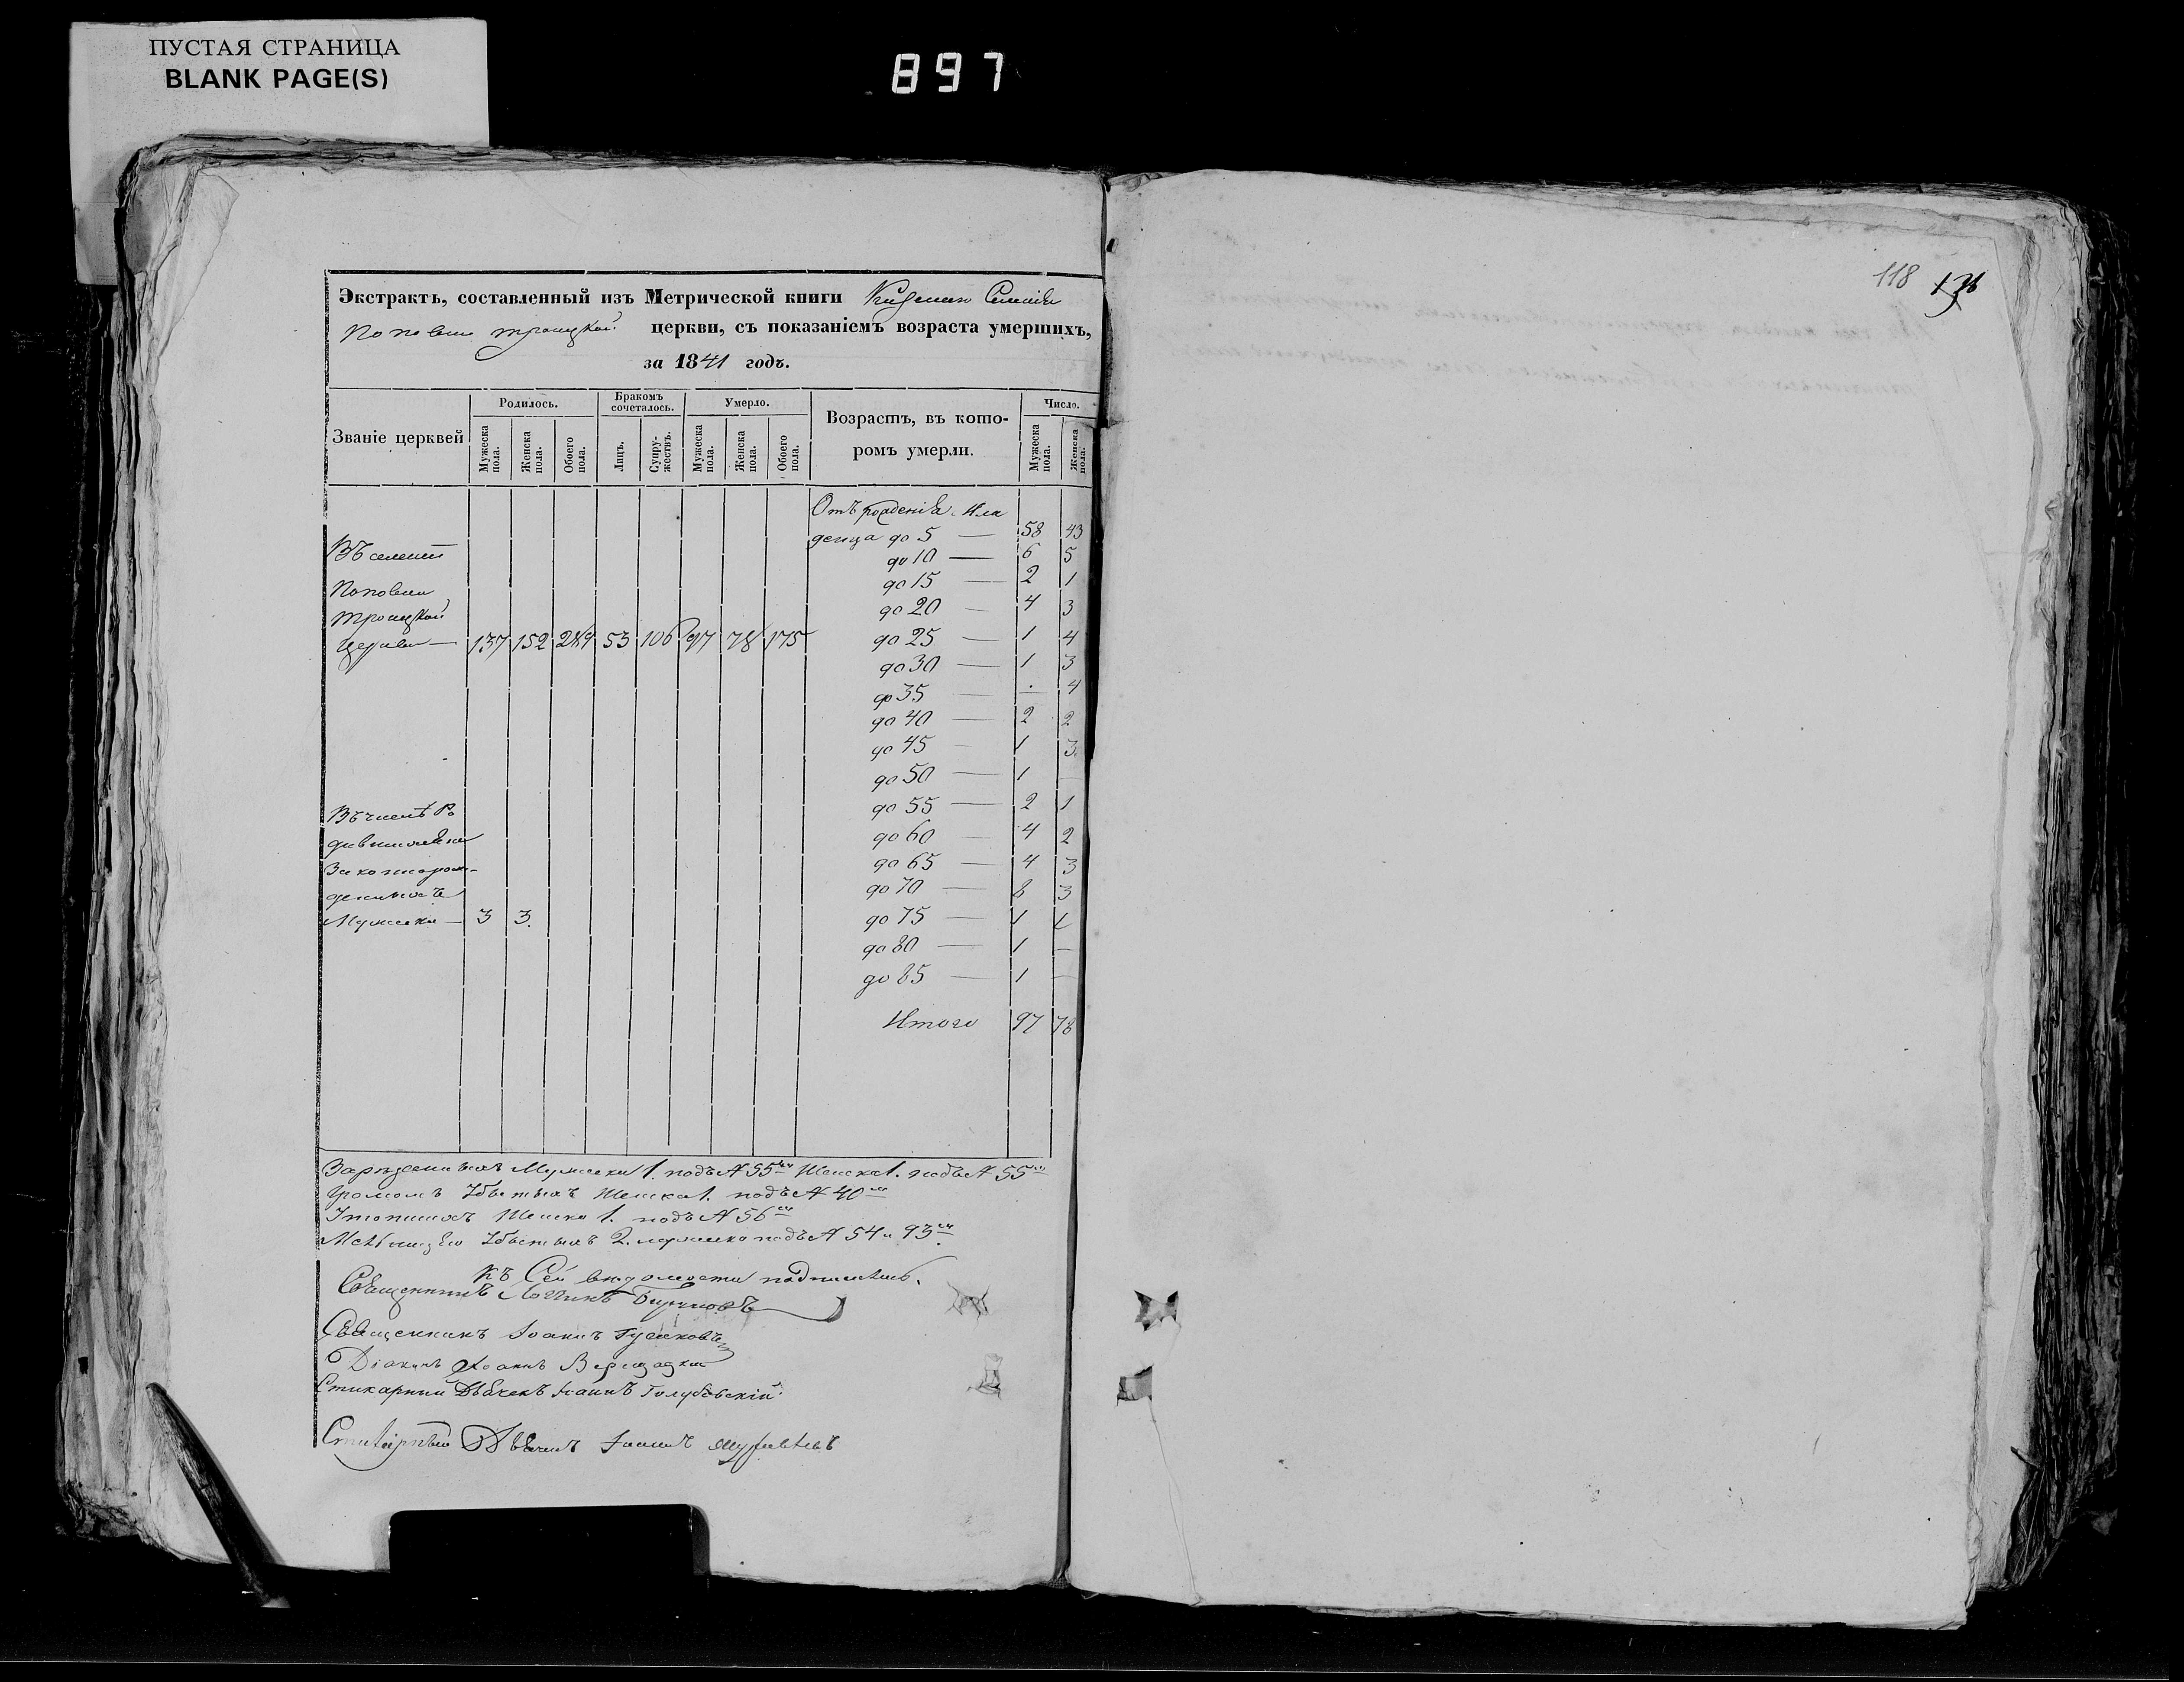 ПУСТАЯ СТРАНИЦА
BLANK PAGE(S)
897
118
Экстрактъ, составленный изъ Метрической книги
Поповки троицкой церкви, съ показаніемъ возраста умершихъ,
за 1841 годъ.
Званіе церквей
Родилось.
Мужеска пола.
Женска пола.
Обоего пола.
Бракомъ сочеталось.
Лицъ.
Супружествъ.
Умерло.
Мужеска пола.
Женска пола.
Обоего пола.
Возрастъ, въ которомъ умерли.
Число.
Мужеска пола.
Женска пола.
Отъ рожденія мла
денца до 5 — 58 43
Въ селеніи
до 10 — 6 5
Поповки
до 15 — 2 1
троицкой
до 20 — 4 3
церкви — 137 152 289 53 106 97 78 175
до 25 — 1 4
до 30 — 1 3
до 35 — . 4
до 40 — 2 2
до 45 — 1 3.
до 50 — 1 —
до 55 — 2 1
до 60 — 4 2
до 65 — 4 3
до 70 — 8 3
Мужеска — 3 3.
до 75 — 1 1
до 80 — 1 —
до 85 — 1 —
Итого 97 78
Мужеска 1. подъ № 35 Женска 1. подъ № 55
громомъ Убитыхъ Женска 1. подъ № 40
Женска 1. подъ № 56
Убитыхъ 2. мужеска подъ № 54 и 93
Къ Сей вѣдомости подписались.
Священникъ Логгинъ
Священникъ Іоаннъ Гусаковъ
Діаконъ Іоаннъ
Стихарный Дьячекъ Іоаннъ Голубовскій
Стихарный Дьячекъ Іоаннъ